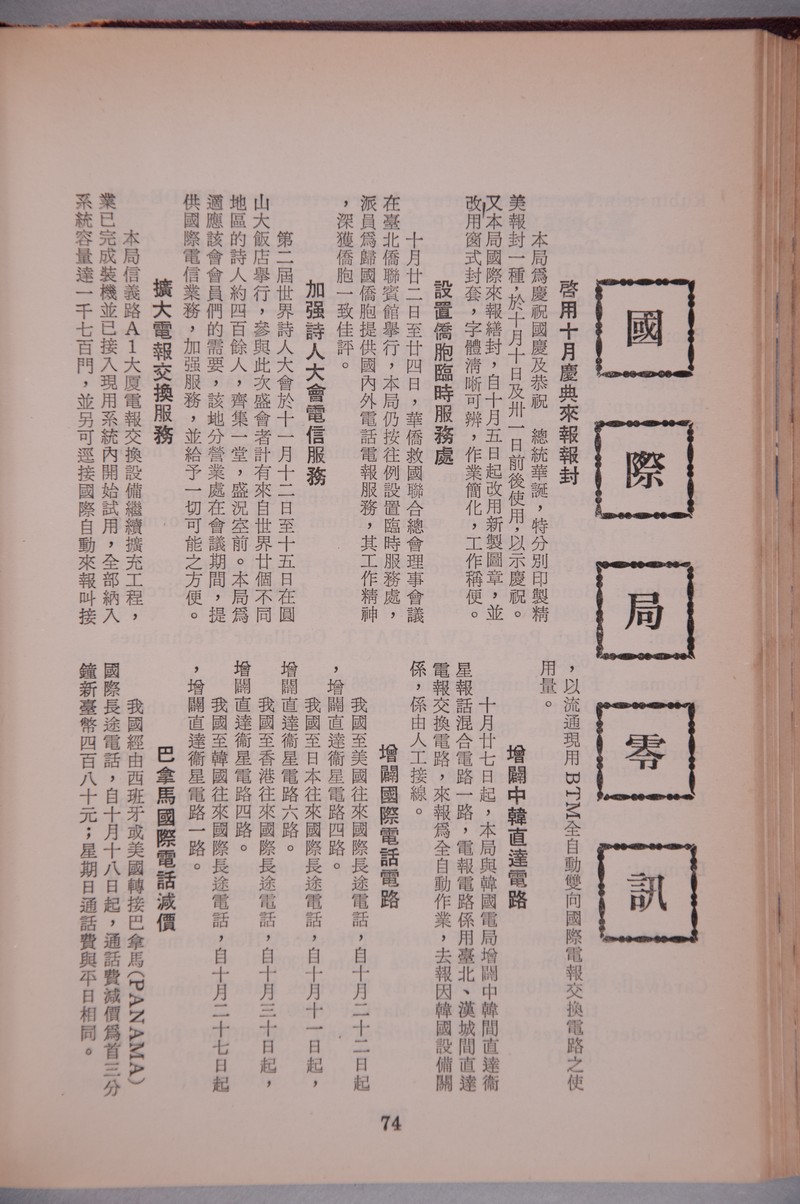 國際局零訊
啓用十月慶典來報報封
本局爲慶祝國慶及恭祝　總統華誕，特分別印製精
美報封一種，於十月十日及卅一日前後使用，以示慶祝。
又本局國際來報繕封，自十月五日起改用新製圖章，並
改用窗式封套，字體淸晰可辨，作業簡化，工作稱便。
設置僑胞臨時服務處
十月廿二日至廿四日，華僑救國聯合總會理事會議
在臺北僑聯賓館舉行，本局仍按往例設置臨時服務處，
派員爲歸國僑胞提供國內外電話電報服務，其工作精神
，深獲僑胞一致佳評。
加强詩人大會電信服務
第二屆世界詩人大會於十一月十二日至十五日在圓
山大飯店舉行，參與此次盛會者計有來自世界廿個不同
地區的詩人約四百餘人，齊集一堂，盛況空前。本局爲
適應該會會員們的需要，該地分營業處在會議期間，提
供國際電信業務，加强服務，並給予一切可能之方便。
擴大電報交換服務
本局信義路A1大厦電報交換設備繼續擴充工程，
業已完成裝機並已接入現用系統內開始試用，全部納入
系統容量達一千七百門，並另可逕接國際自動來報叫接
，以流通現用BTM全自動雙向國際電報交換電路之使
用量。
增闢中韓直達電路
十月廿七日起，本局與韓國電局增闢中韓間直達衞
星報話混合電路一路，電報電路係用臺北、漢城間直達
電報交換電路，來報爲全自動作業，去報因韓國設備關
係，係由人工接線。
增闢國際電話電路
我國至美國往來國際長途電話，自十月二十二日起
，增闢直達衞星電路四路。
我國至日本往來國際長途電話，自十月十一日起，
增闢直達衞星電路六路。
我國至香港往來國際長途電話，自十月三十日起，
增闢直達衞星電路四路。
我國至韓國往來國際長途電話，自十月二十七日起
，增闢直達衞星電路一路。
巴拿馬國際電話減價
我國經由西班牙或美國轉接巴拿馬(PANAMA)
國際長途電話，自十月十八日起，通話費減價爲首三分
鐘新臺幣四百八十元；星期日通話費與平日相同。
74